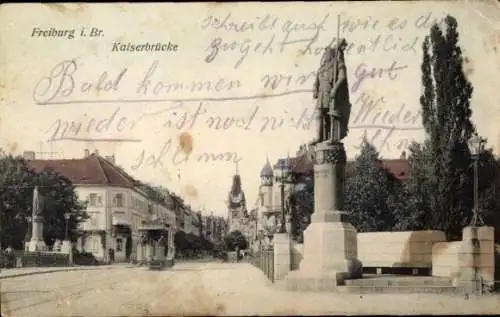 Freiburg i. Br.
Kaiserbrücke
Schreibt auch wie es d
geht
hoffentlich
gut
Bald kommen wir
Wieder
wieder ist noch nicht
schlimm